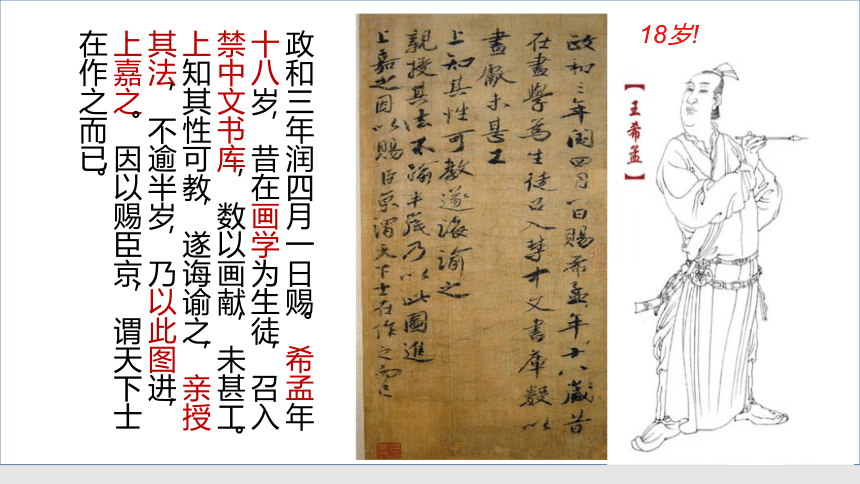 政和三年润四月一日赐。希孟年
十八岁，昔在画学为生徒，召入
禁中文书库，数以画献，未甚工。
上知其性可教，遂诲谕之，亲授
其法，不逾半岁，乃以此图进，
上嘉之。因以赐臣京，谓天下士
在作之而已。
政和三年閏四月一日賜希孟年十八歲昔
在畫學為生徒召入禁中文書庫數以
畫獻未甚工
上知其性可教遂誨諭之
親授其法不踰半歲乃以此圖進
上嘉之因以賜臣京謂天下士在作之而已
18岁!
【王希孟】